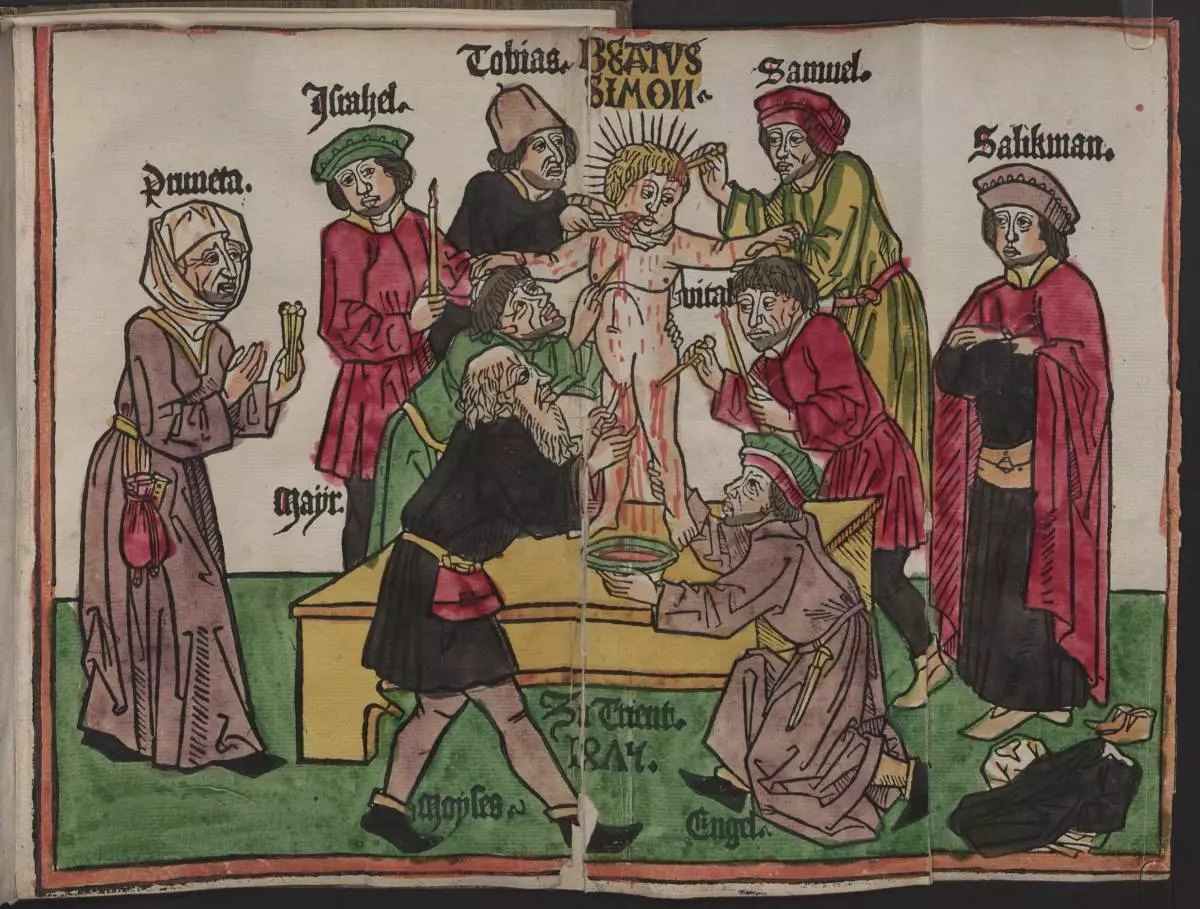 Tobias. BEATVS
SIMON.
Samuel.
Israhel.
Salikman.
Pruneta.
vital
Mayr.
Zu Trient.
1475.
Moyses
Engel.